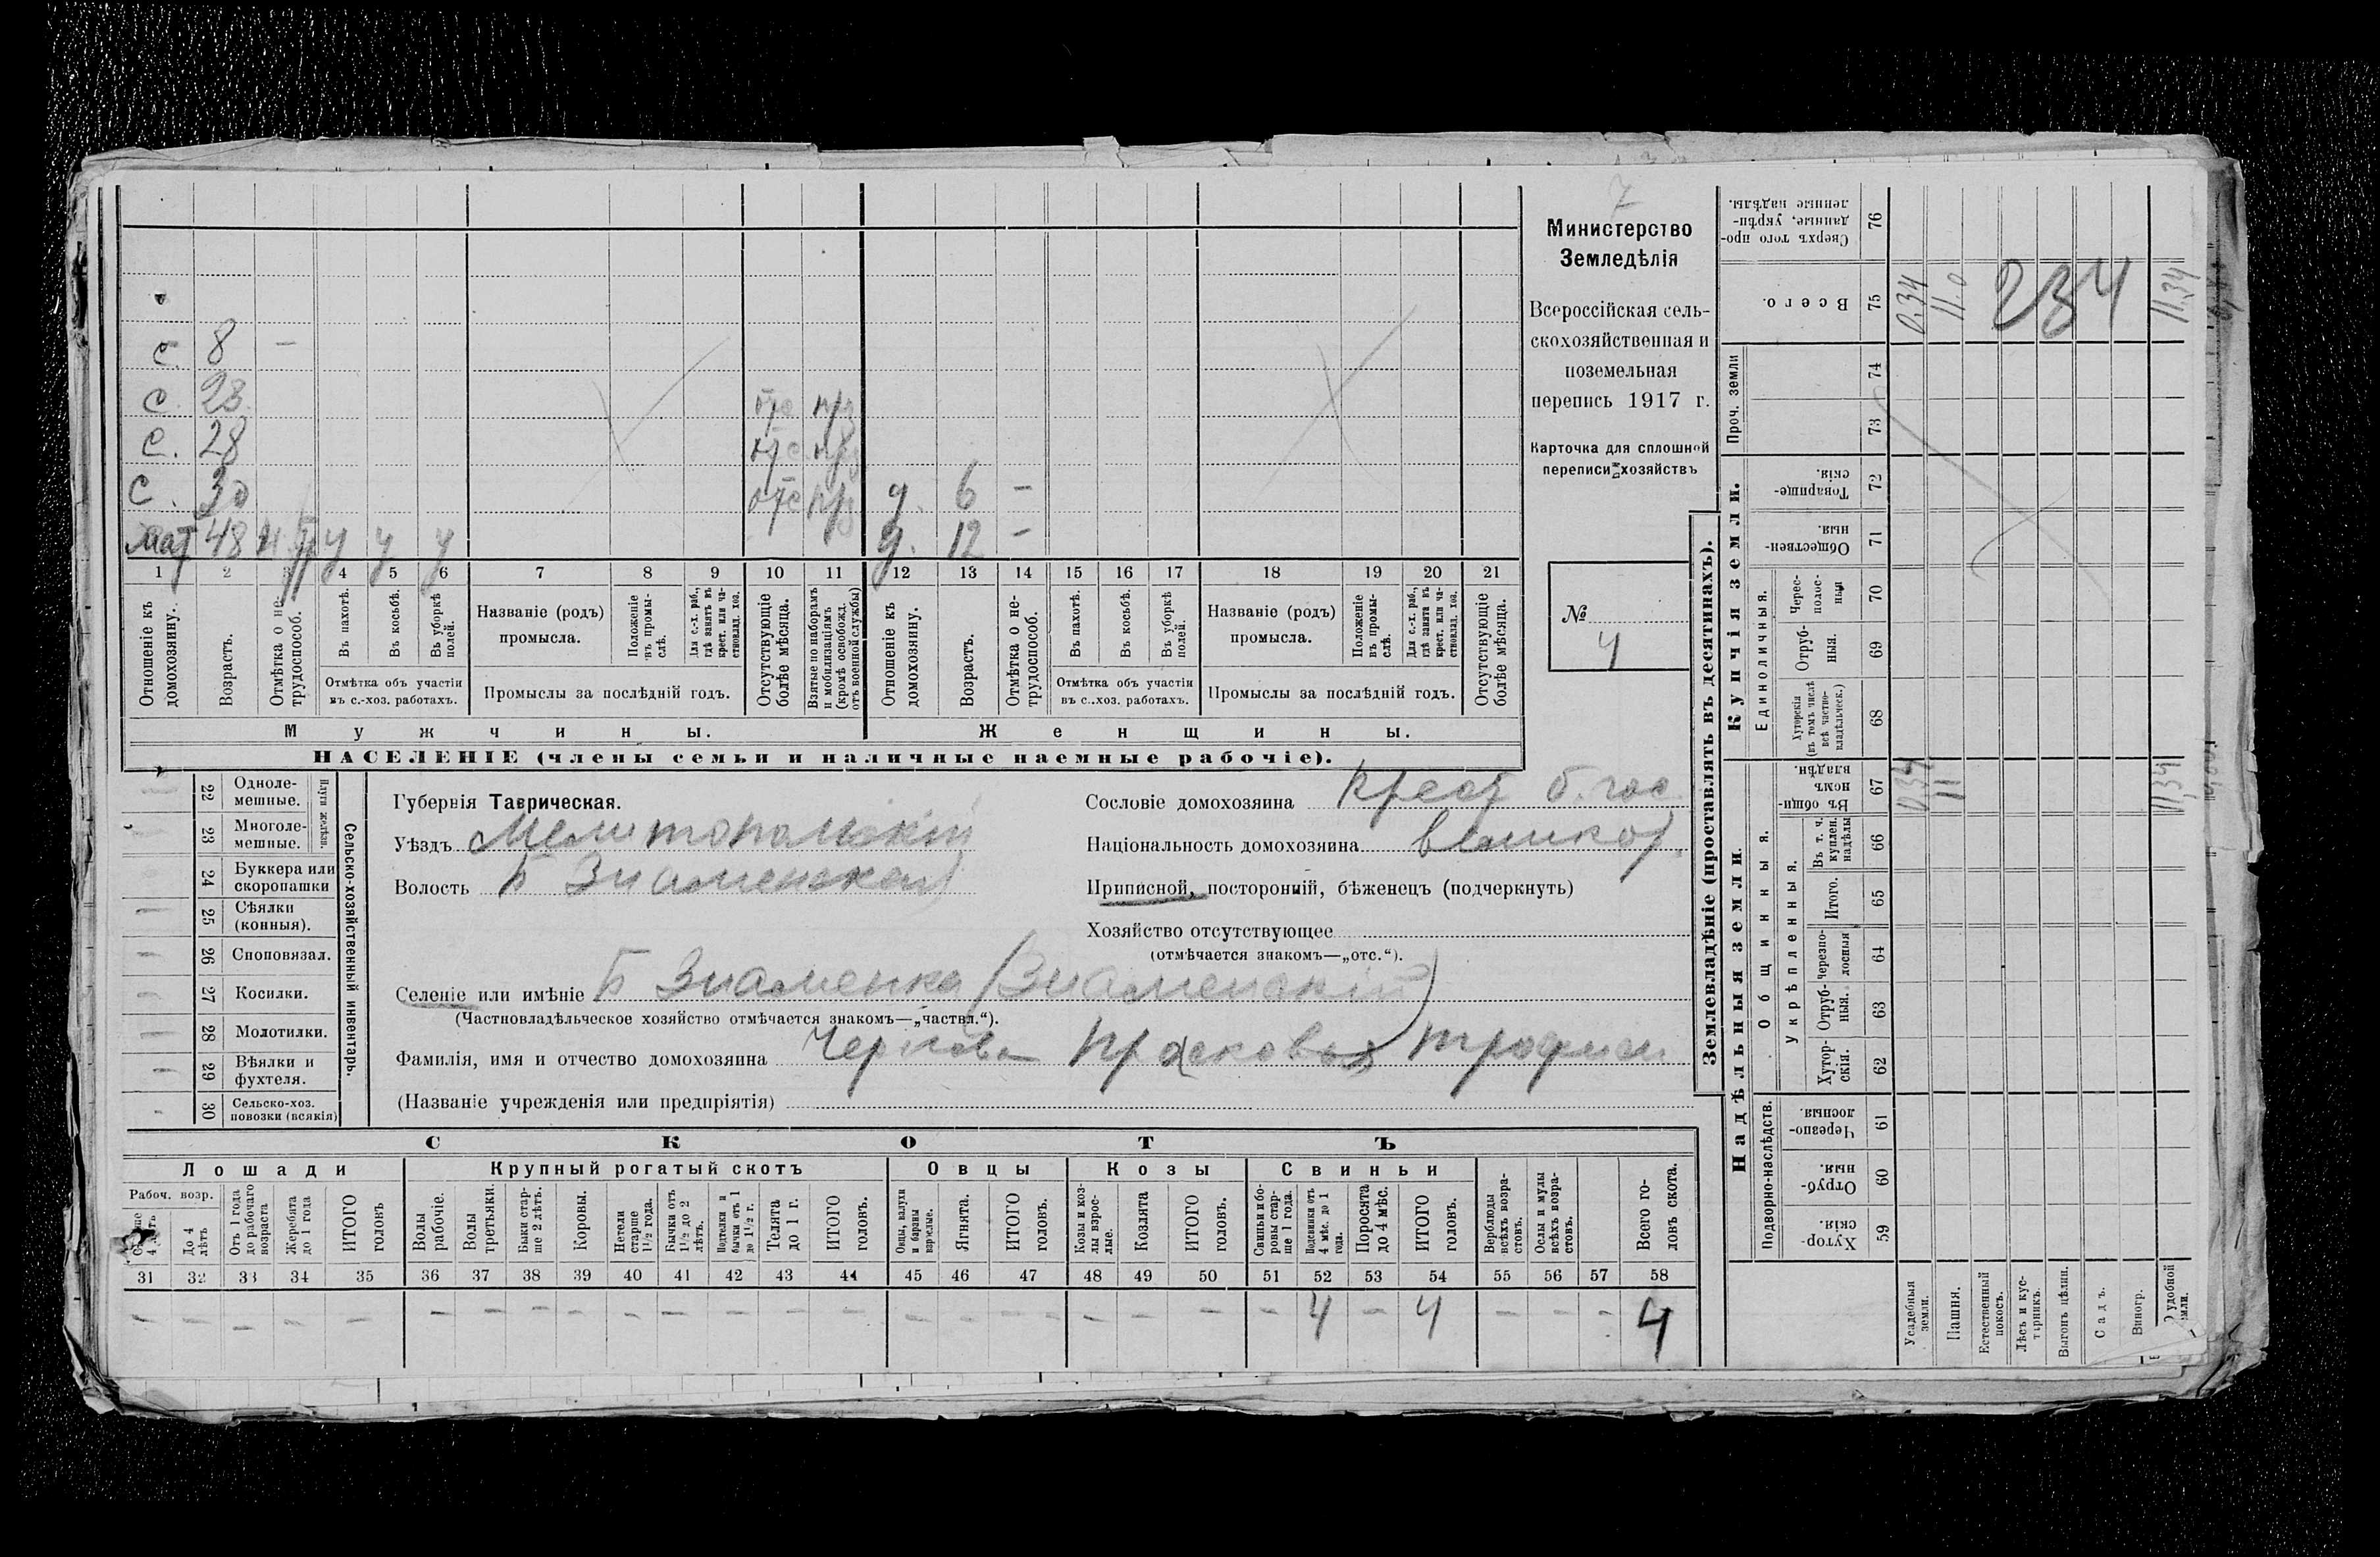 7
Министерство
Земледѣлія
Всероссійская сель-
скохозяйственная и
поземельная
перепись 1917 г.
Карточка для сплошной
переписи хозяйствъ
№
4
с. 8 —
с. 23 отс пр
с. 28 отс пр
с. 30 отс пр д. 6 —
мат 48 у у у д. 12 —
1 2 3 4 5 6 7 8 9 10 11 12 13 14 15 16 17 18 19 20 21
Отношеніе къ домохозяину.
Возрастъ.
Отмѣтка о не-трудоспособ.
Въ пахотѣ.
Въ косьбѣ.
Въ уборкѣ полей.
Отмѣтка объ участіи
въ с.-хоз. работахъ.
Названіе (родъ)
промысла.
Положеніе въ промы-слѣ.
Для с.-х. раб., гдѣ занятъ въ крест. или ча-ствовлад. хоз.
Промыслы за послѣдній годъ.
Отсутствующіе болѣе мѣсяца.
Взятые по наборамъ и мобилизаціямъ (кромѣ освобожд. отъ военной службы)
Отношеніе къ домохозяину.
Возрастъ.
Отмѣтка о не-трудоспособ.
Въ пахотѣ.
Въ косьбѣ.
Въ уборкѣ полей.
Отмѣтка объ участіи
въ с.-хоз. работахъ.
Названіе (родъ)
промысла.
Положеніе въ промы-слѣ.
Для с.-х. раб., гдѣ занята въ крест. или ча-ствовлад. хоз.
Промыслы за послѣдній годъ.
Отсутствующіе болѣе мѣсяца.
Мужчины. Женщины.
НАСЕЛЕНІЕ (члены семьи и наличные наемные рабочіе).
22 Одноле-мешные.
23 Многоле-мешные.
Плуги желѣзн.
24 Буккера или скоропашки
25 Сѣялки (конныя).
26 Сноповязал.
27 Косилки.
28 Молотилки.
29 Вѣялки и фухтеля.
30 Сельско-хоз. повозки (всякія)
Сельско-хозяйственный инвентарь.
Губернія Таврическая.
Уѣздъ Мелитопольскій
Волость Б Знаменская
Сословіе домохозяина крест б. гос
Національность домохозяина великор.
Приписной, посторонній, бѣженецъ (подчеркнуть)
Хозяйство отсутствующее
(отмѣчается знакомъ—„отс.“).
Селеніе или имѣніе Б Знаменка (Знаменскій)
(Частновладѣльческое хозяйство отмѣчается знакомъ—„частвл.“).
Фамилія, имя и отчество домохозяина Чернова Прасковья Трофим
(Названіе учрежденія или предпріятія)
СКОТЪ
Лошади Крупный рогатый скотъ Овцы Козы Свиньи
Рабоч. возр.
До 4 лѣтъ
Отъ 1 года до рабочаго возраста
Жеребята до 1 года
ИТОГО головъ
Волы рабочіе.
Волы третьяки.
Быки стар-ше 2 лѣтъ.
Коровы.
Нетели старше 1½ года.
Бычки отъ 1½ до 2 лѣтъ.
Подтелки и бычки отъ 1 до 1½ г.
Телята до 1 г.
ИТОГО головъ.
Овцы, валухи и бараны взрослые.
Ягнята.
ИТОГО головъ.
Козы и коз-лы взрос-лые.
Козлята
ИТОГО головъ.
Свиньи и бо-ровы стар-ше 1 года.
Подсвинки отъ 4 мѣс. до 1 года.
Поросята до 4 мѣс.
ИТОГО головъ.
Верблюды всѣхъ возра-стовъ.
Ослы и мулы всѣхъ возра-стовъ.
Всего го-ловъ скота.
31 32 33 34 35 36 37 38 39 40 41 42 43 44 45 46 47 48 49 50 51 52 53 54 55 56 57 58
— — — — — — — — — — — — — — — — — — — — — 4 — 4 — — — 4
Землевладѣніе (проставлять въ десятинахъ).
Сверхъ того про-данные, укрѣп-ленные надѣлы. 76
Всего. 75 0.34 11.0 234 11.34
Проч. земли 74
73
Купчія земли.
Товарище-скія. 72
Обществен-ныя. 71
Единоличныя.
Черес-полос-ныя 70
Отруб-ныя. 69
Хуторскія (въ томъ числѣ всѣ частно-владѣльческ.) 68
Надѣльныя земли
Общинныя.
Въ общи-номъ владѣн. 67 0.34 11 11.34
Укрѣпленныя.
Въ т. ч. куплен. надѣлы 66
Итого. 65
Черезпо-лосныя 64
Отруб-ныя. 63
Хутор-скія. 62
Подворно-наслѣдств.
Черезпо-лосныя. 61
Отруб-ныя. 60
Хутор-скія. 59
Усадебныя земли.
Пашня.
Естественный покосъ.
Лѣсъ и кус-тарникъ.
Выгонъ цѣлин.
Садъ.
Виногр.
удобной